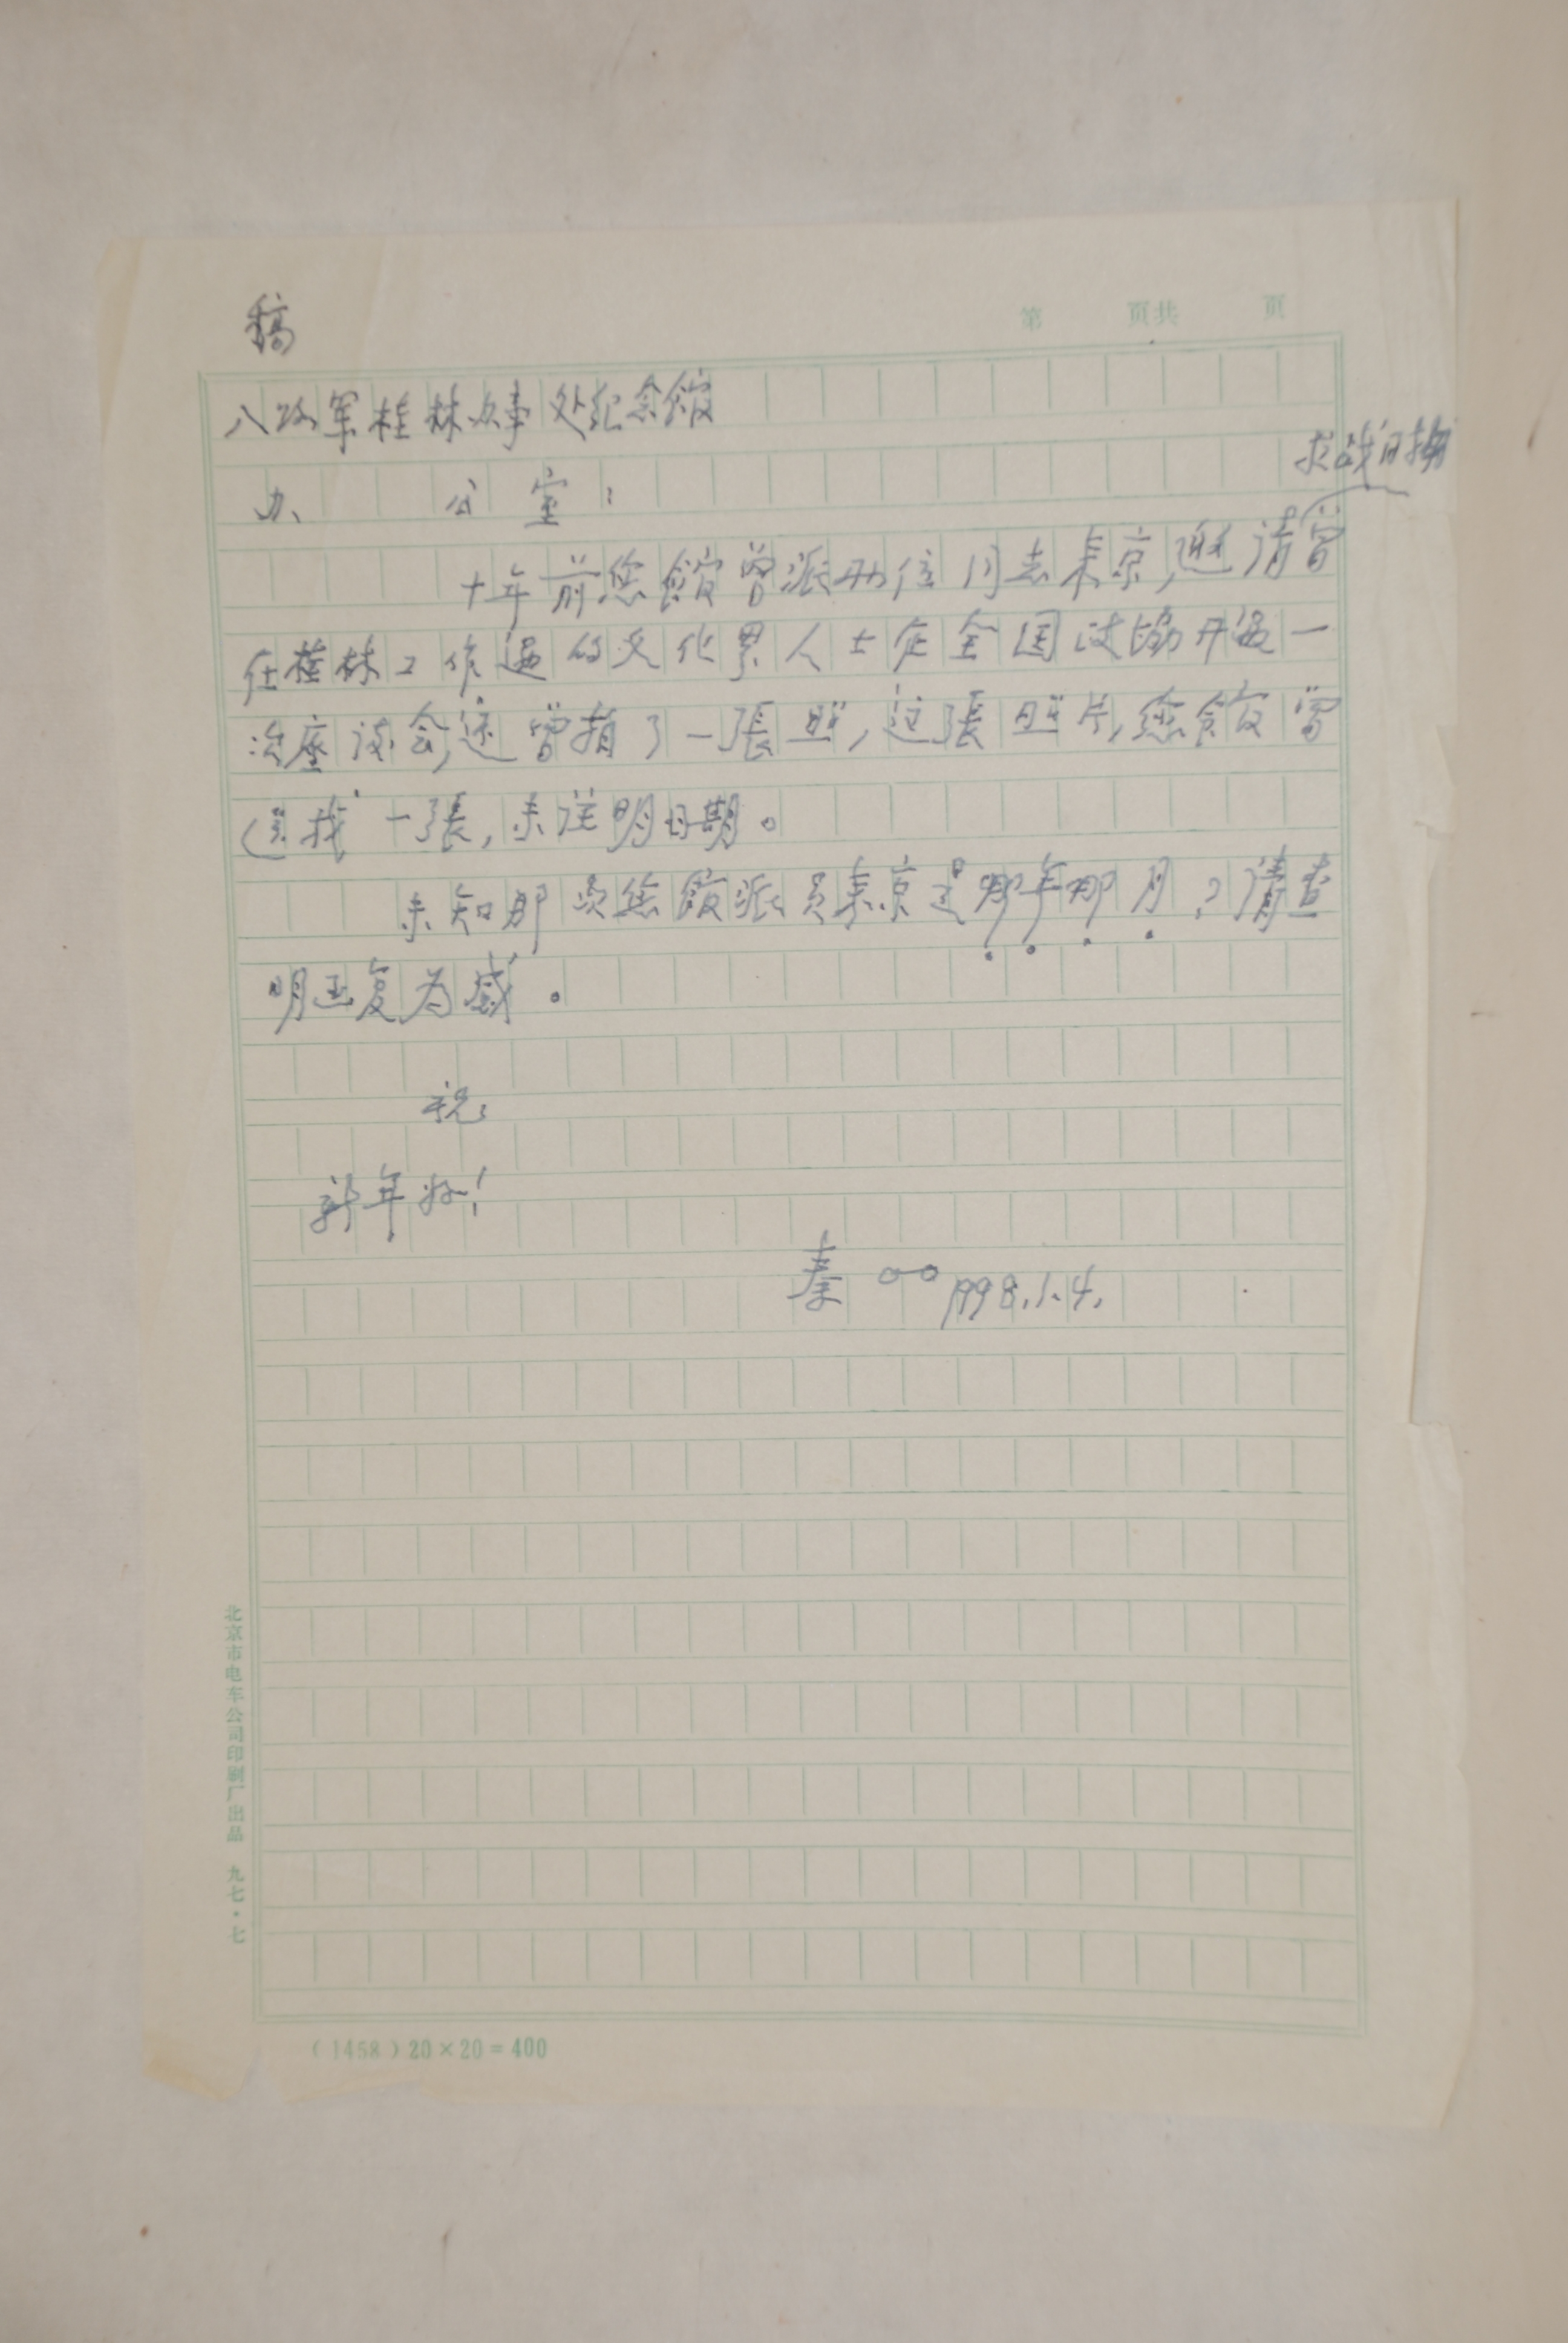 第 页共 页
稿
八路军桂林办事处纪念馆
办 公 室：
抗战时期
十年前您館曾派两位同志来京,邀请曾
在桂林工作过的文化界人士在全国政协开过一
次座谈会,还曾拍了一張照,这張照片,您館曾
送我一張,未注明日期。
未知那次您館派员来京是哪年哪月?请查
明函复为感。
祝
新年好!
秦○○1998.1.4.
北京市电车公司印刷厂出品 九七·七
(1458)20×20=400